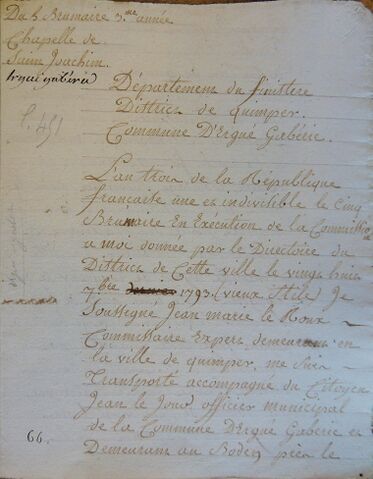 Du 5 Brumaire 3.me année
Chapelle de
Saint Joachim
Ergué gabéric
Département du finistere
District de quimper
Commune D'Ergué Gabéric
L'an trois de la République
française une et indivisible le Cinq
Brumaire En Exécution de la Commission
a moi donnée par le Directoire du
District de Cette ville le vingt huit
7bre 1793 (vieux Stile) Je
Soussigné Jean marie le Roux
Commissaire Expert demeurant en
la ville de quimper, me Suis
Transporté accompagné du Citoyen
Jean le Jour officier municipal
de la Commune D'Ergué Gabéric et
Demeurant au Boden près le
66.